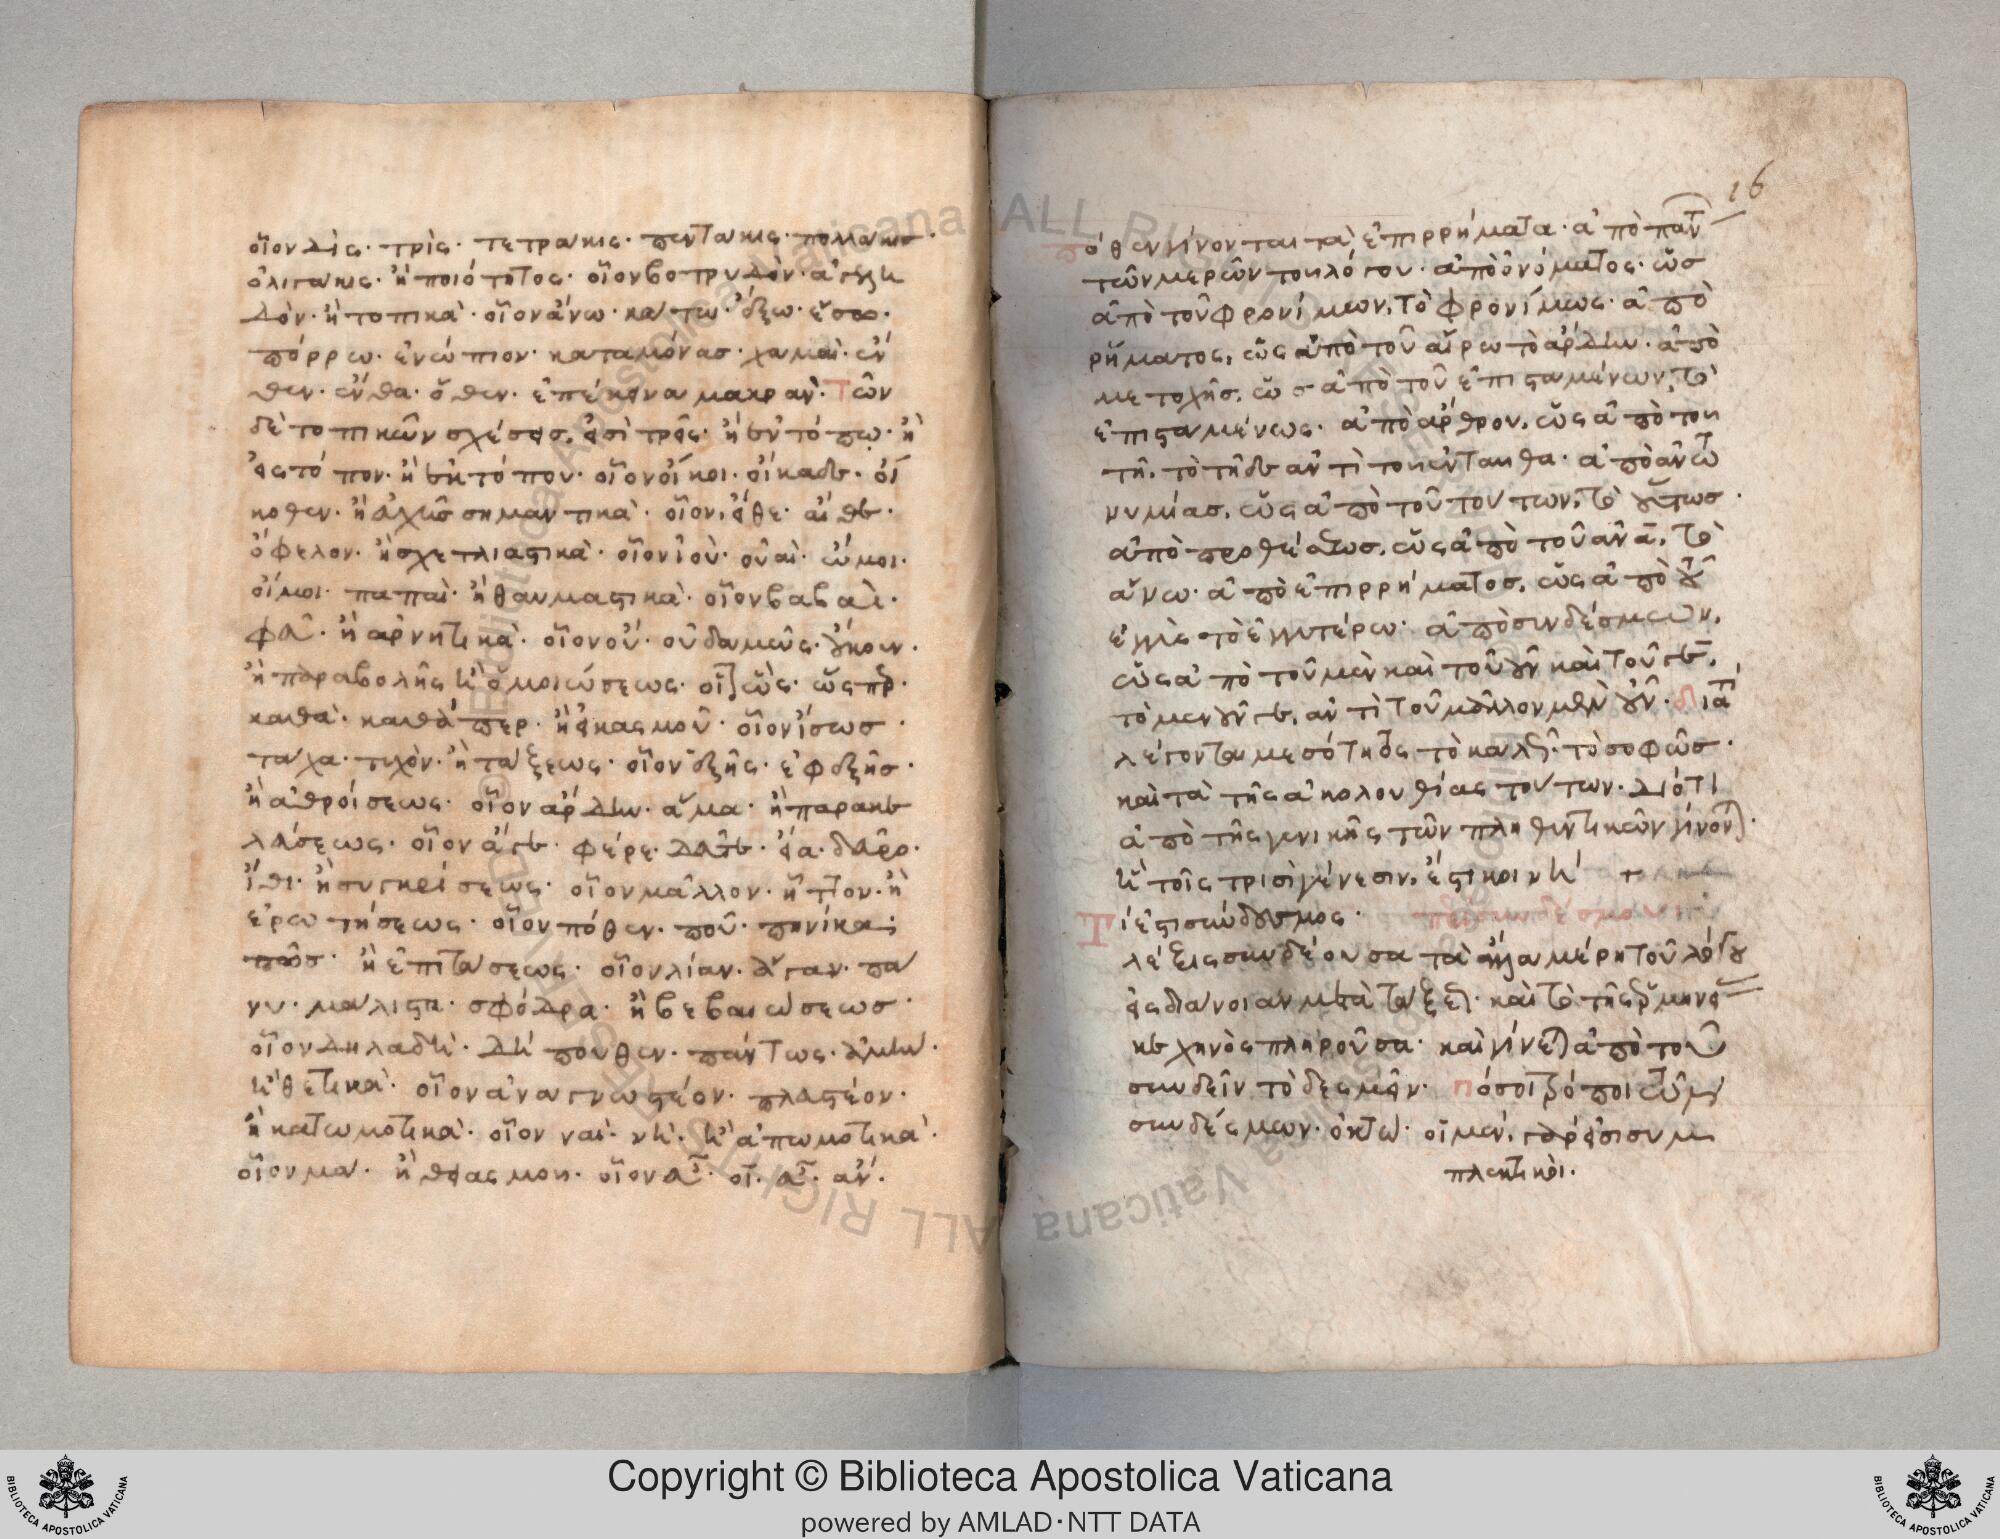 οἷον δὶς· τρὶς· τετράκις· πεντάκις· πολλάκις·
ὀλιγάκις· ἢ ποιότητος· οἷον βοτρυδὸν· ἀγελη
δὸν· ἢ τοπικὰ· οἷον ἄνω· κάτω· ἔξω· ἔσω·
πόρρω· ἐνώπιον· καταμόνας· χαμαὶ· ἔν
θεν· ἔνθα· ὅθεν· ἐπέκεινα μακράν· Τῶν
δὲ τοπικῶν σχέσεις, εἰσὶ τρεῖς· ἢ ἐν τόπω· ἢ
εἰς τόπον· ἢ ἐκ τόπου· οἷον οἴκοι· οἴκαδε· οἴ
κοθεν· ἢ εὐχῆς σημαντικὰ· οἷον, εἴθε· αἴθε·
ὄφελον· ἢ σχετλιαστικὰ· οἷον ἰοὺ· οὐαὶ· ὤμοι·
οἴμοι· παπαὶ· ἢ θαυμαστικὰ· οἷον βαβαὶ·
φεῦ· ἢ ἀρνητικὰ· οἷον οὔ· οὐδαμῶς· οὔκουν·
ἢ παραβολῆς ἢ ὁμοιώσεως· οἷον ὡς· ὥσπερ·
καθὰ· καθάπερ· ἢ εἰκασμοῦ· οἷον ἴσως·
τάχα· τυχὸν· ἢ τάξεως· οἷον ἑξῆς· ἐφεξῆς·
ἢ ἀθροίσεως· οἷον ἄρδην· ἅμα· ἢ παρακε
λεύσεως· οἷον ἄγε· φέρε· δεῦτε· εἶα· δεῦρο·
ἴθι· ἢ συγκρίσεως· οἷον μᾶλλον· ἧττον· ἢ
ἐρωτήσεως· οἷον πόθεν· ποῦ· πηνίκα·
πῶς· ἢ ἐπιτάσεως· οἷον λίαν· ἄγαν· πά
νυ· μάλιστα· σφόδρα· ἢ βεβαιώσεως·
οἷον δηλαδὴ· δή πουθεν· πάντως· ἀμὴν·
ἢ θετικὰ· οἷον ἀναγνωστέον· πλαστέον·
ἢ κατωμοτικὰ· οἷον ναὶ· νὴ· ἢ ἀπωμοτικὰ·
οἷον μὰ· ἢ θειασμοῦ·
16
ὁθεν γίνονται τὰ ἐπιρρήματα· ἀπὸ παντ
τῶν μερῶν τοῦ λόγου· ἀπὸ ὀνόματος· ὡς
ἀπὸ τοῦ φρονίμων, τὸ φρονίμως· ἀπὸ
ρήματος, ὡς ἀπὸ τοῦ αἴρω τὸ ἄρδην· ἀπὸ
μετοχῆς, ὡς ἀπὸ τοῦ ἐπισταμένων, τὸ
ἐπισταμένως· ἀπὸ ἄρθρου, ὡς ἀπὸ τοῦ
τῆ, τὸ τῆδε ἀντὶ τοῦ ἐνταῦθα· ἀπὸ ἀντω
νυμίας, ὡς ἀπὸ τοῦ τούτων, τὸ οὕτως·
ἀπὸ προθέσεως, ὡς ἀπὸ τοῦ ἀνὰ, τὸ
ἄνω· ἀπὸ ἐπιρρήματος, ὡς ἀπὸ τοῦ
ἐγγὺς τὸ ἐγγυτέρω· ἀπὸ συνδέσμων,
ὡς ἀπὸ τοῦ μὲν καὶ τοῦ οὖν καὶ τοῦ γε,
τὸ μενοῦνγε, ἀντὶ τοῦ μᾶλλον μὲν οὖν· Διατί
λέγονται μεσότητος τὸ καλῶς· τὸ σοφῶς·
καὶ τὰ τῆς ἀκολουθίας τούτων· διότι
ἀπὸ τῆς γενικῆς τῶν πληθυντικῶν γίνονται·
ἢ τοῖς τρισὶ γένεσιν, ἔστι κοινὴ +
Τί ἐστι σύνδεσμος·
λέξις συνδέουσα τὰ ἄλλα μέρη τοῦ λόγου
εἰς διάνοιαν μετὰ τάξεως· καὶ τὸ τῆς ἑρμηνεί
κεχηνὸς πληροῦσα· καὶ γίνεται ἀπὸ τοῦ
συνδεῖν τὸ δεσμεῖν· Πόσοι τρόποι τῶν
συνδέσμων· ὀκτὼ· οἱ μὲν, γάρ εἰσι συμ
πλεκτικοὶ·
Copyright © Biblioteca Apostolica Vaticana
powered by AMLAD·NTT DATA
BIBLIOTECA APOSTOLICA VATICANA
BIBLIOTECA APOSTOLICA VATICANA